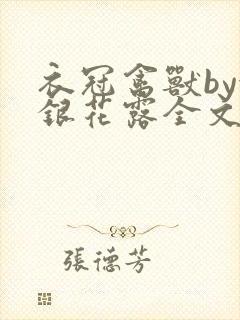 衣冠禽獸by
銀花露全文
張德芳